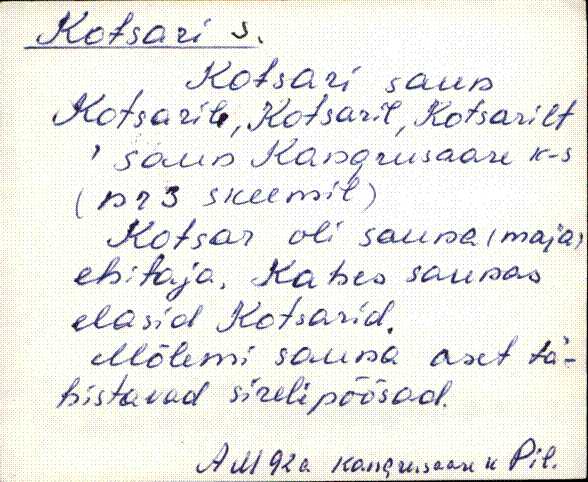 Kotsari s.
Kotsari saun
Kotsarile, Kotsaril, Kotsarilt
' saun Kangrusaare k-s
(nr 3 skeemil)
Kotsar oli sauna (maja)
ehitaja. Kahes saunas
elasid Kotsarid.
Mõlemi sauna aset tä-
histavad sirelipõõsad.
AM 92a Kangrusaare k Pil.